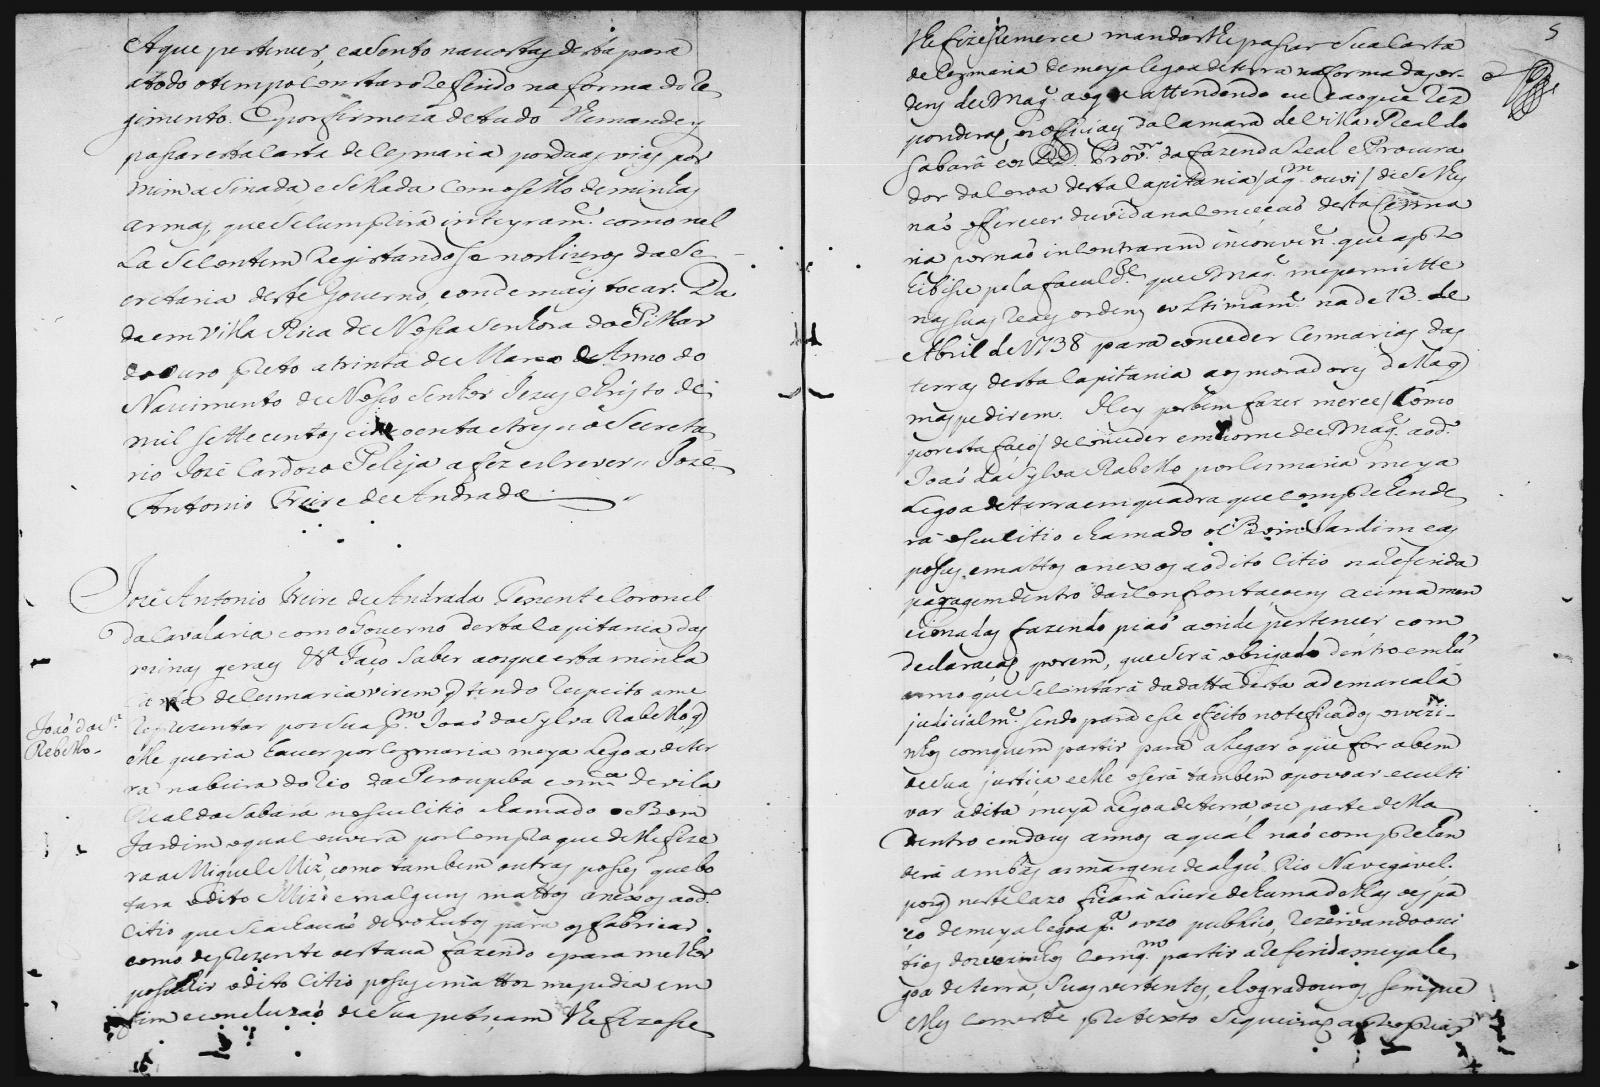 A que pertencer, e asento nas costas desta para
a todo o tempo constar o refferido na forma do Re
gimento. E por firmeza de tudo lhe mandey
passar esta Carta de Cezmaria por duas vias por
mim asinada, e sellada com o sello de minhas
armas, que se cumprirá inteyramte como nel
la se contem registandosse nos livros da Se
cretaria deste Governo, e onde mais tocar. Da
da em Villa Rica de Nossa Senhora do Pillar
do ouro preto a trinta de Marso do Anno do
Nascimento de Nosso Senhor Jezus Christo de
mil settecentos cincoenta e tres e o Secreta
rio Jozé Cardozo Peleja a fez escrever // Jozé
Antonio Freire de Andrada
Jozé Antonio Freire de Andrada Tenente Coronel
da Cavalaria com o Governo desta Capitania das
minas geraes &a Faço saber aos que esta minha
Carta de cesmaria virem q tendo respeito a me
reprezentar por sua pam Joaõ da Sylva Rabello, q
elle queria haver por cezmaria meya legoa de ter
ra na beira do Rio da Peroupeba comca de Vila
Real do Sabara no seu citio chamado o Bom
Jardim o qual ouvera por compra que delle fize
ra a Miguel Miz, como tambem outras posses que bo
tara o dito Miz e em alguns mattos anexos ao d.
Citio que se achavaõ devolutos para os fabricar
como de prezente os estava fazendo e para melhor
possuhir o dito Citio posses e mattos me pedia em
fim e concluzaõ de sua petiçam lhe fizesse
Joaõ da Sa
Rabello-
5
lhe fizesse merce mandarlhe passar sua Carta
de Cezmaria de meya legoa de terra na forma das or-
dens de S Mag. ao que attendendo eu e ao que res
ponderaõ os officiaes da Camara de Villa Real do
Sabará e os DD. Provor da fazenda Real e Procura
dor da Coroa desta Capitania / aqm ouvi / de se lhes
naõ offerecer duvida na concecaõ desta Cesma
ria por naõ incontrarem inconvente que a pro
hibisse pela faculde que S Mag. me permitte
nas suas reaes ordens e ultimamte na de 13 de
Abril de 1738 para conceder Cesmarias das
terras desta Capitania aos moradores della q
mas pedirem. Hey por bem fazer merce / como
por esta faço / de conceder em nome de S Mag. ao d.
Joaõ da Sylva Rabello por Cesmaria meya
legoa de terra em quadra que comprehende
rá o seu citio chamado o Bom Jardim e as
posses e mattos anexos ao dito Citio na referida
paragem dentro das confrontaçoens acima men
cionadas fazendo piaõ aonde pertencer com
declaraçaõ porem, que será obrigado dentro em hũ
anno que se contará da datta desta a demarcala
judicialmte sendo para esse effeito noteficados os vezi-
nhos com quem partir para alegar o que for a bem
de sua justiça e elle o será tambem a povoar e culti
var a dita meya legoa de terra, ou parte della
dentro em dous annos a qual naõ comprehen
derá ambas as margens de algũ Rio Navegavel.
porq neste cazo ficará Livre de huma dellas o espa
ço de meya legoa pa o uzo publico, rezervando os ci
tios dos vezinhos comqm partir a referida meya le
goa de terra, suas vertentes, e logradouros, sem que
elles com este pretexto se queiraõ apropriar